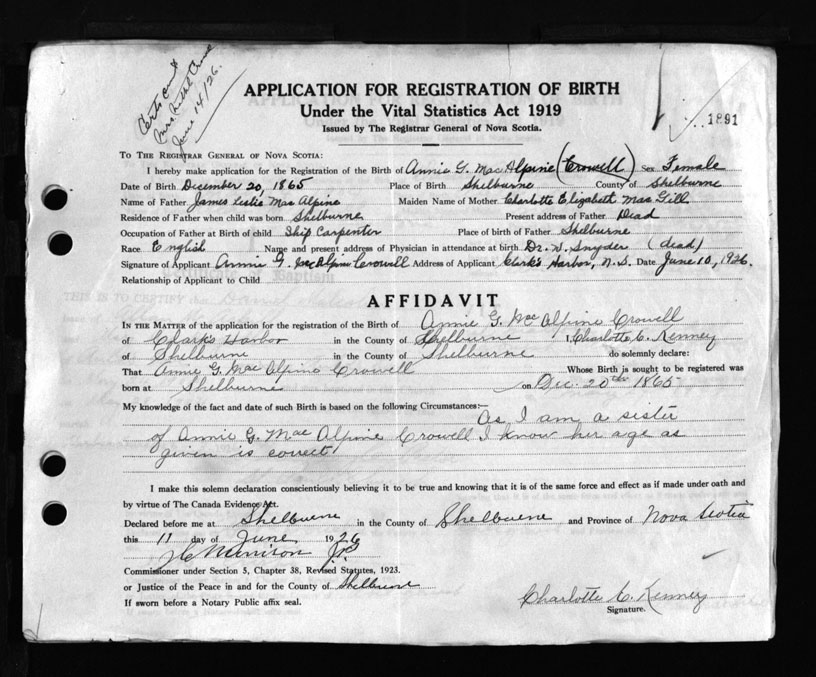 Certs cent
June 14/26.
APPLICATION FOR REGISTRATION OF BIRTH
Under the Vital Statistics Act 1919
Issued by The Registrar General of Nova Scotia.
1891
TO THE REGISTRAR GENERAL OF NOVA SCOTIA:
I hereby make application for the Registration of the Birth of Annie G. Mac Alpine (Crowell) Sex Female
Date of Birth December 20, 1865 Place of Birth Shelburne County of Shelburne
Name of Father James Leslie Mac Alpine Maiden Name of Mother Charlotte Elizabeth Mac Gill
Residence of Father when child was born Shelburne Present address of Father Dead
Occupation of Father at Birth of child Ship Carpenter Place of birth of Father Shelburne
Race English Name and present address of Physician in attendance at birth Dr. Snyder (dead)
Signature of Applicant Annie G. MacAlpine Crowell Address of Applicant Clark's Harbor, N. S. Date June 10, 1926.
Relationship of Applicant to Child
AFFIDAVIT
IN THE MATTER of the application for the registration of the Birth of Annie G. Mac Alpine Crowell
of Clark's Harbor in the County of Shelburne I, Charlotte C. Kenney
of Shelburne in the County of Shelburne do solemnly declare:
That Annie G. Mac Alpine Crowell Whose Birth is sought to be registered was
born at Shelburne on Dec. 20th 1865
My knowledge of the fact and date of such Birth is based on the following Circumstances:— As I am a sister
of Annie G. Mac Alpine Crowell I know her age as
given is correct
I make this solemn declaration conscientiously believing it to be true and knowing that it is of the same force and effect as if made under oath and
by virtue of The Canada Evidence Act.
Declared before me at Shelburne in the County of Shelburne and Province of Nova Scotia
this 11 day of June 1926
J.P.
Commissioner under Section 5, Chapter 38, Revised Statutes, 1923.
or Justice of the Peace in and for the County of Shelburne
If sworn before a Notary Public affix seal.
Charlotte C. Kenney
Signature.